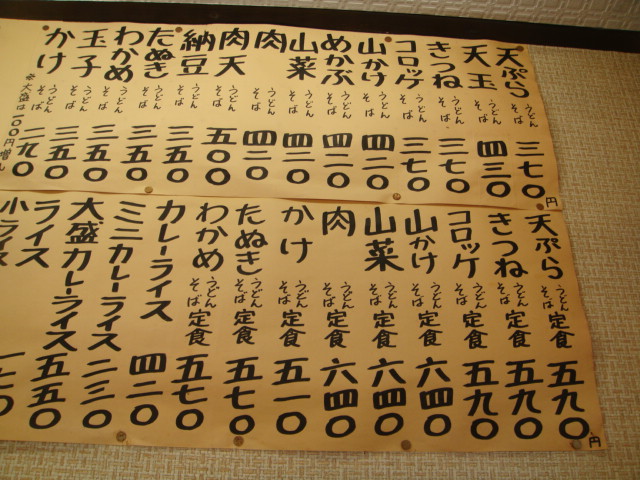 天ぷら うどん そば 三七〇円
天玉 うどん そば 四三〇
きつね うどん そば 三七〇
コロッケ うどん そば 三七〇
山かけ うどん そば 四二〇
めかぶ うどん そば 四二〇
山菜 うどん そば 四二〇
肉 うどん そば 四二〇
肉天 うどん そば 五〇〇
納豆 うどん そば 三五〇
たぬき うどん そば 三五〇
わかめ うどん そば 三五〇
玉子 うどん そば 三五〇
かけ うどん そば 二九〇
※大盛は一〇〇円増し
天ぷら うどん そば 定食 五九〇円
きつね うどん そば 定食 五九〇
コロッケ うどん そば 定食 五九〇
山かけ うどん そば 定食 六四〇
山菜 うどん そば 定食 六四〇
肉 うどん そば 定食 六四〇
かけ うどん そば 定食 五一〇
たぬき うどん そば 定食 五七〇
わかめ うどん そば 定食 五七〇
カレーライス 四二〇
ミニカレーライス 二三〇
大盛カレーライス 五五〇
ライス 一七〇
小ライス